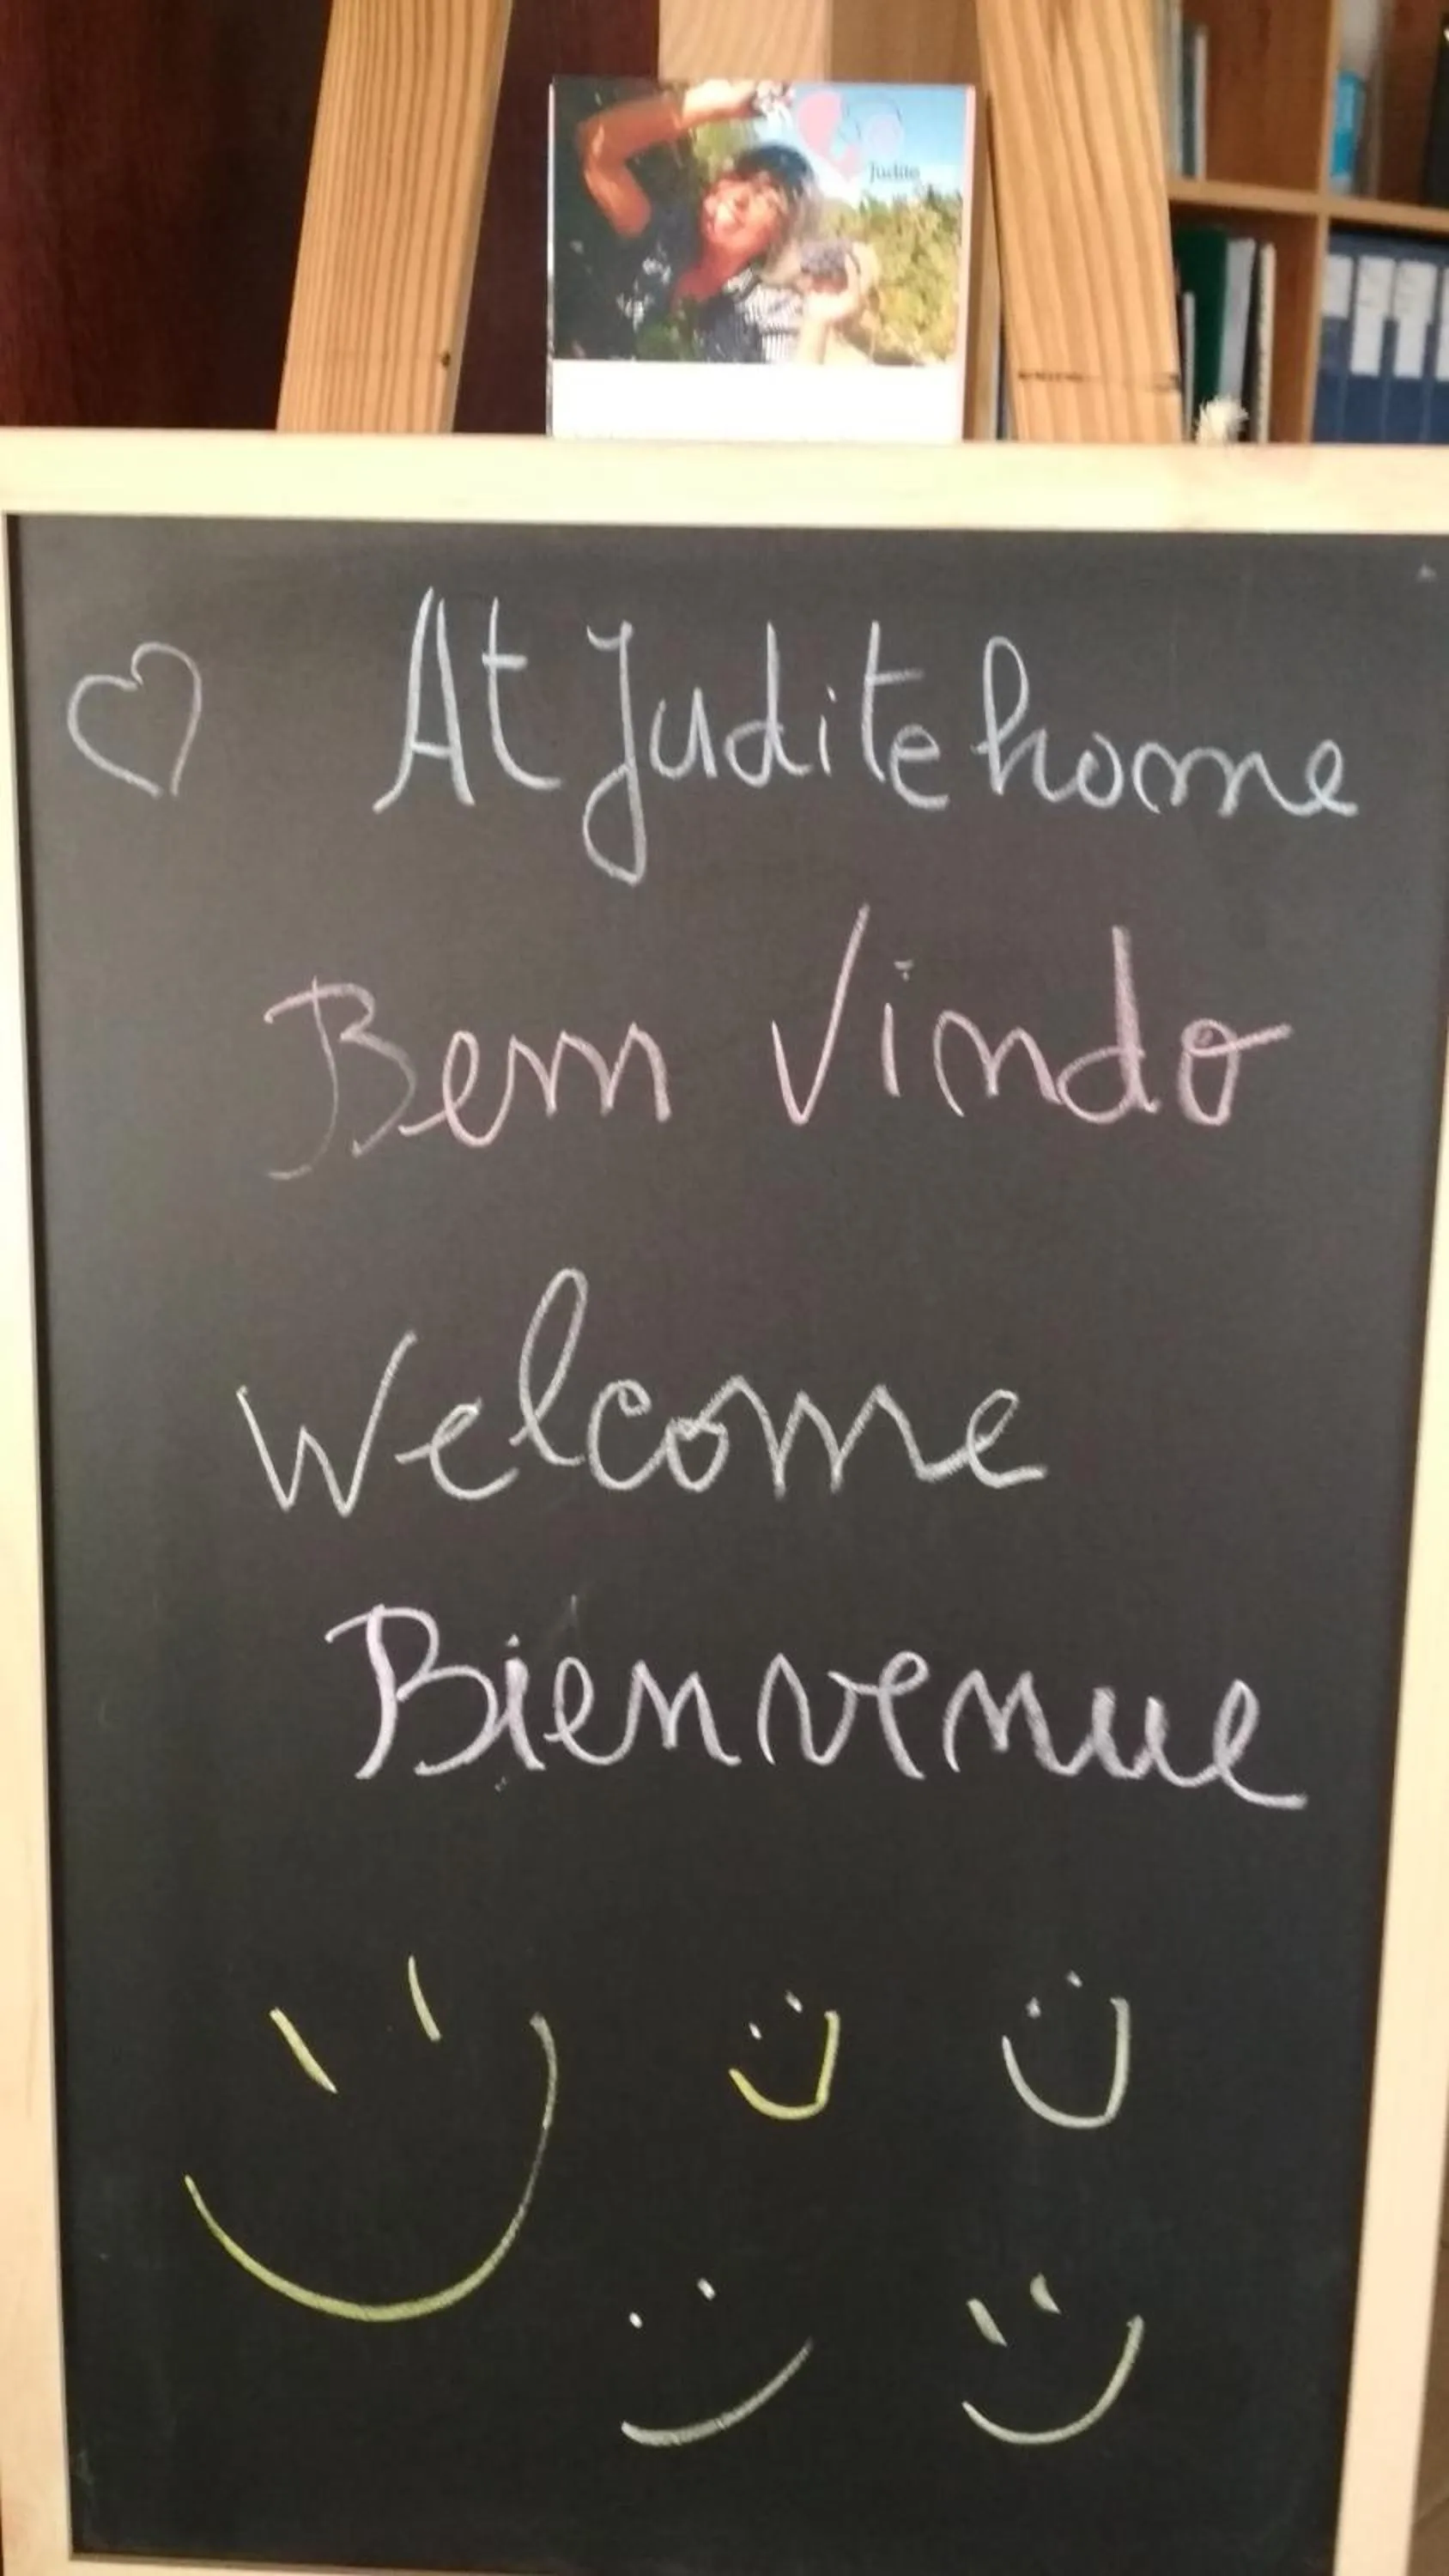 Judite
At Judite home
Bem Vindo
Welcome
Bienvenue